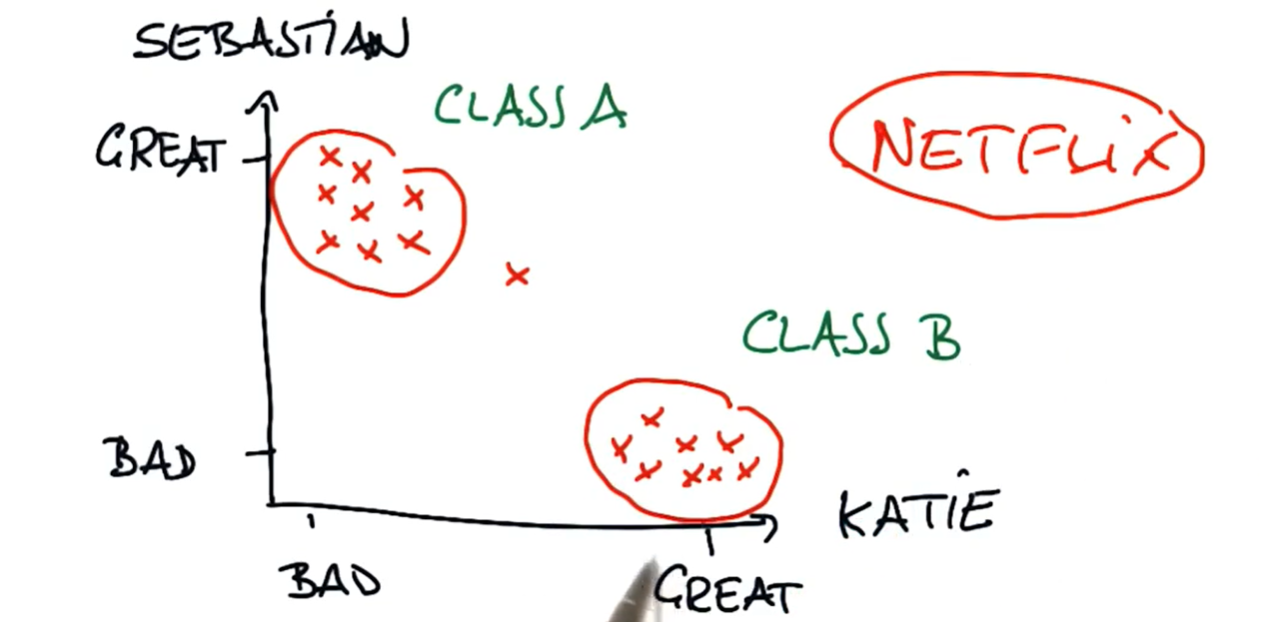 SEBASTIAN
CLASS A
NETFLIX
GREAT
CLASS B
BAD
KATIE
BAD
GREAT